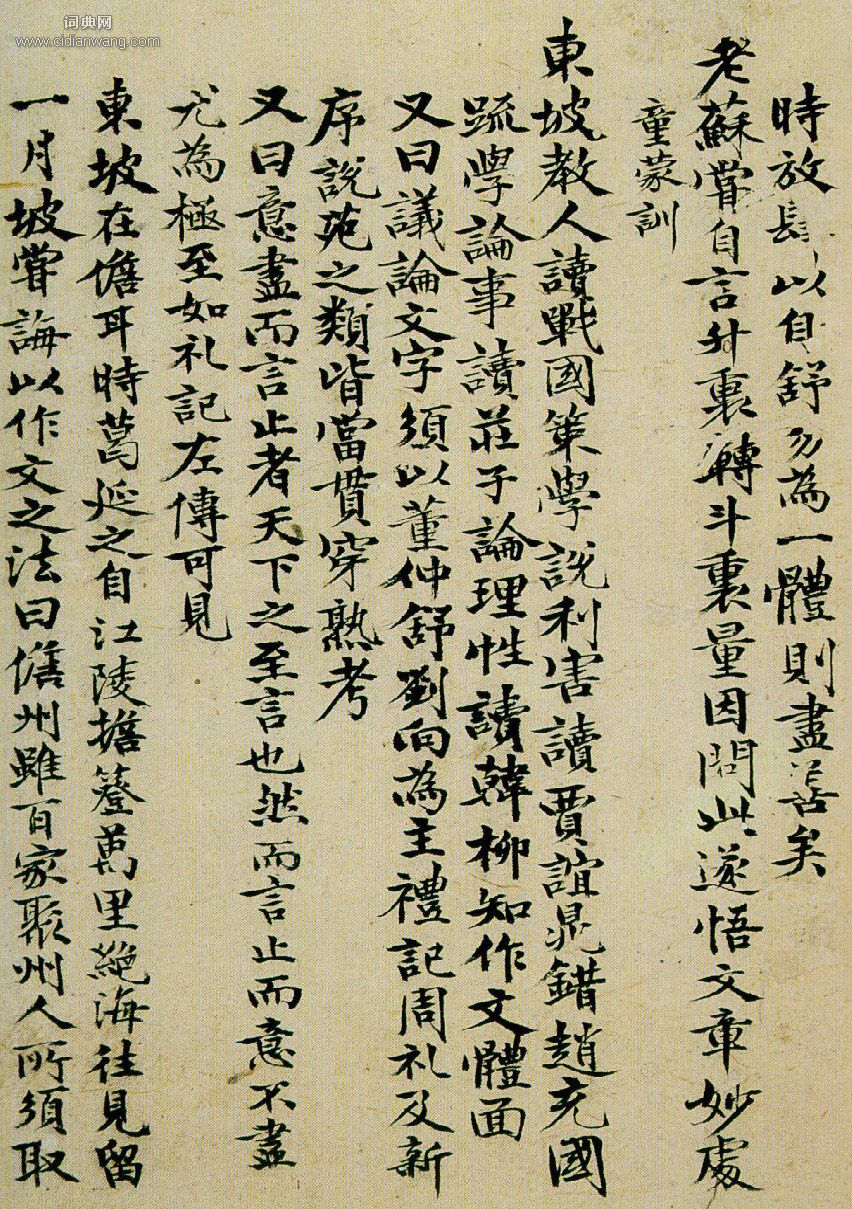 词典网
www.cidianwang.com
時放肆以自舒勿為一體則盡善矣
老蘇嘗自言升裏轉斗裏量因聞此遂悟文章妙處
童蒙訓
東坡教人讀戰國策學說利害讀賈誼晁錯趙充國
疏學論事讀莊子論理性讀韓柳知作文體面
又曰議論文字須以董仲舒劉向為主禮記周礼及新
序說苑之類皆當貫穿熟考
又曰意盡而言止者天下之至言也然而言止而意不盡
尤為極至如礼記左傳可見
東坡在儋耳時葛延之自江陵擔簦萬里絕海往見留
一月坡嘗誨以作文之法曰儋州雖百家聚州人所須取